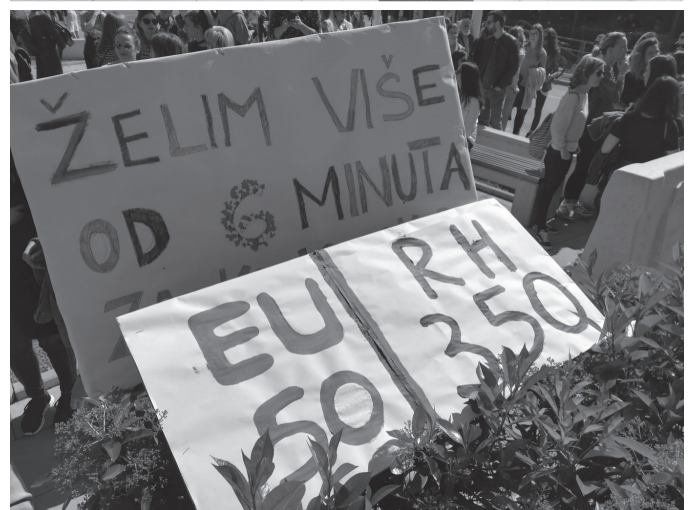 ŽELIM VIŠE
OD 6 MINUTA
ZA
EU
50
RH
250